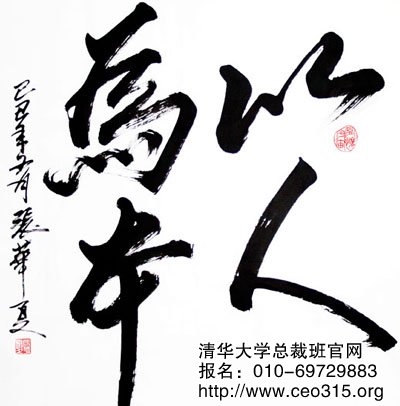 以人
為本
己丑年 張華
清华大学总裁班官网
报名：010-69729883
http://www.ceo315.org